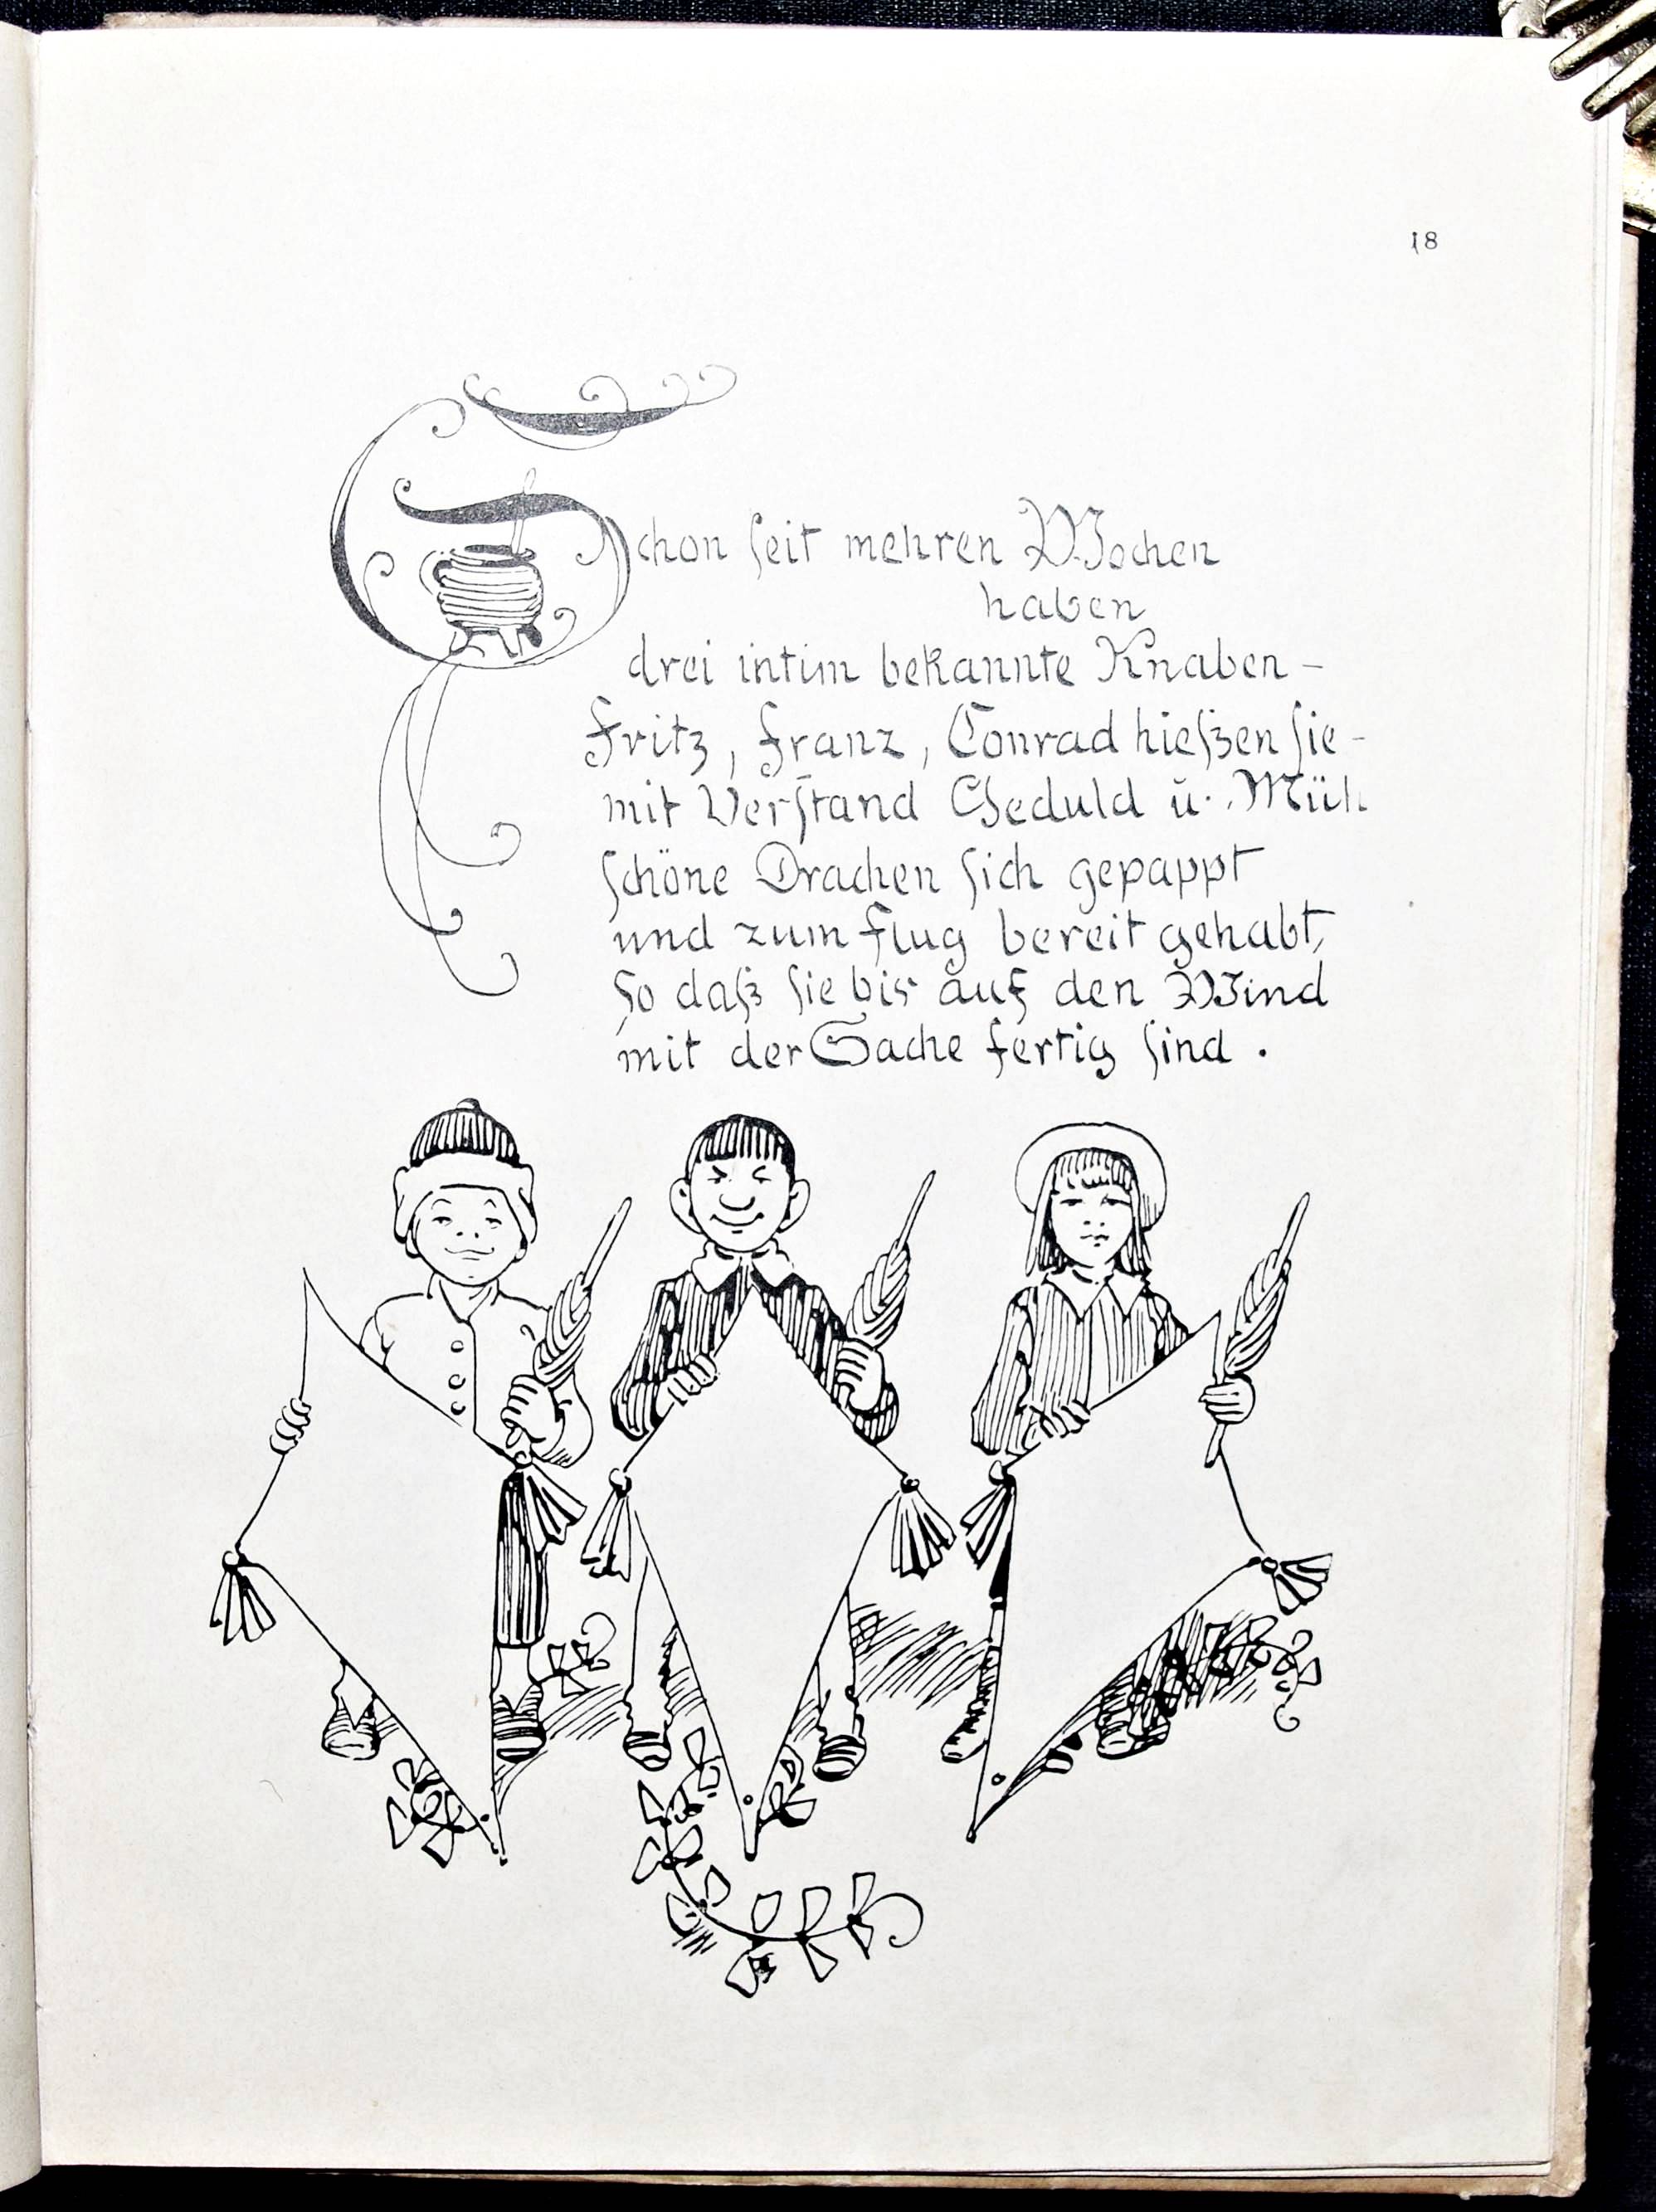 18
Schon seit mehren Wochen
haben
drei intim bekannte Knaben –
Fritz, Franz, Conrad hießen sie –
mit Verstand Geduld u. Müh
schöne Drachen sich gepappt
und zum Flug bereit gehabt,
so daß sie bis auf den Wind
mit der Sache fertig sind.